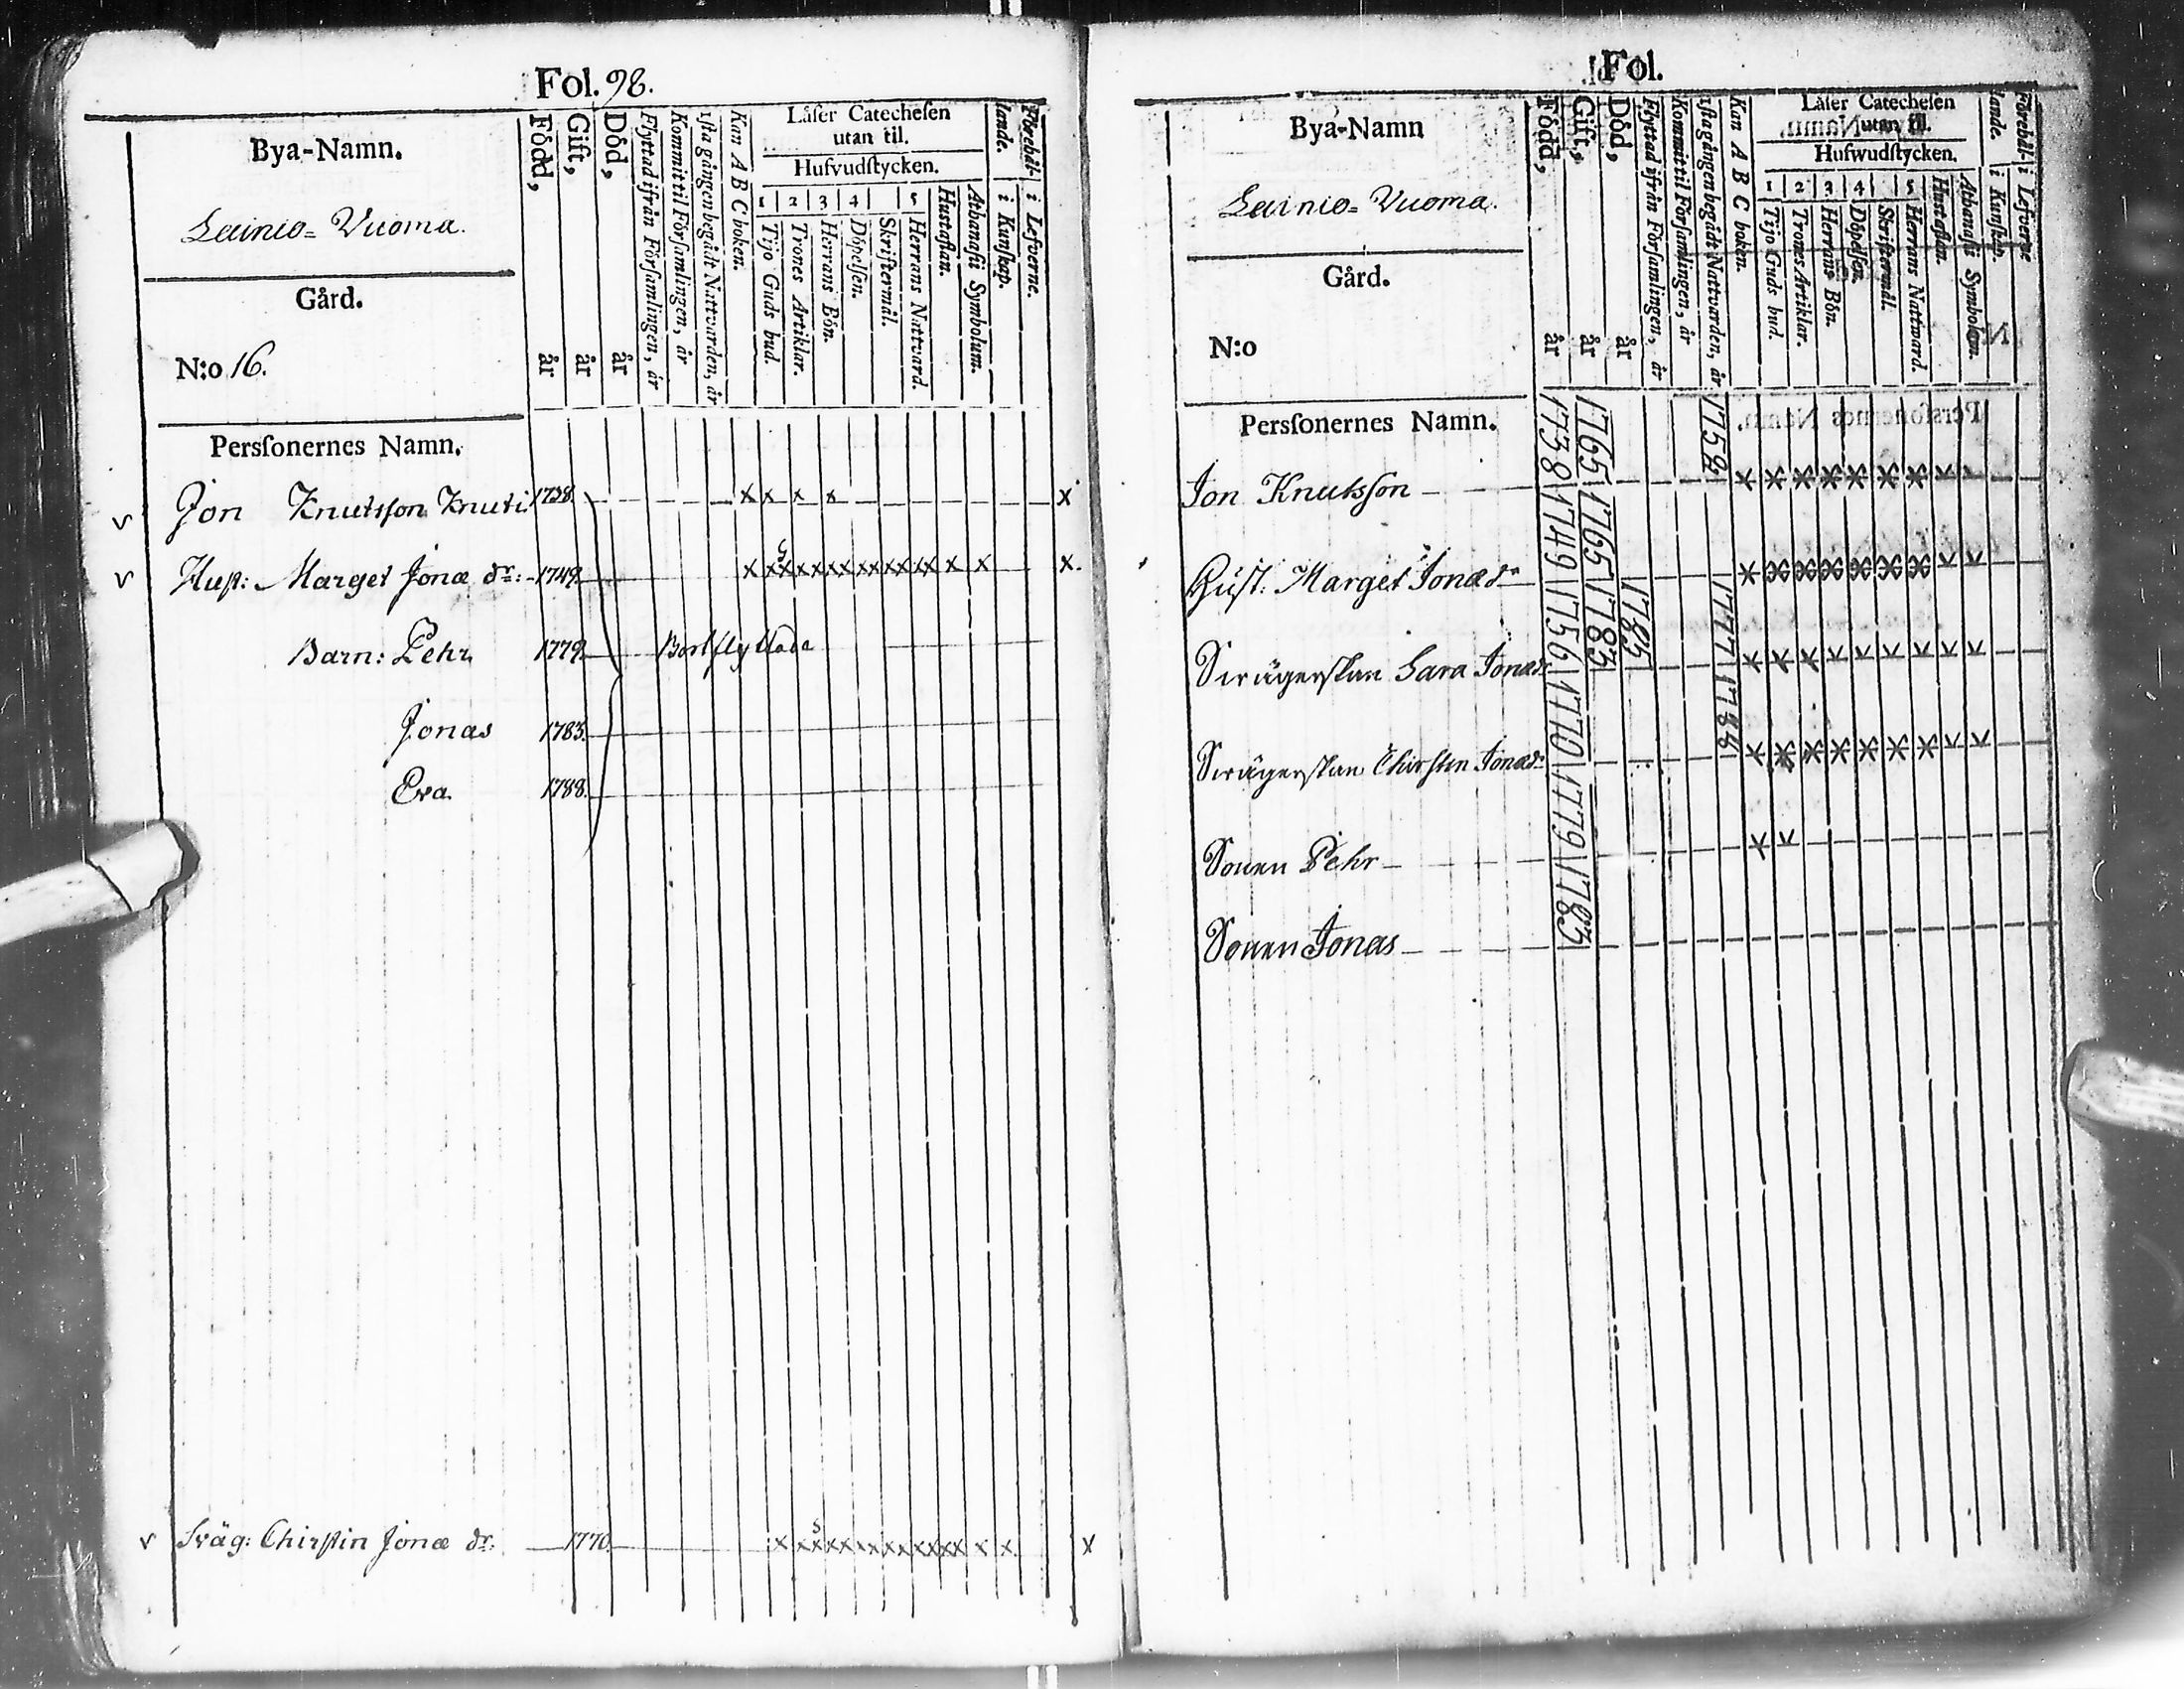 Fol. 98.
Bya-Namn.
Lainio= Vuoma.
Gård.
N:o 16.
Född, år
Gift, år
Död, år
Flyttad ifrån Förſamlingen, år
Kommit til Förſamlingen, år
1ſta gången begådt Nattvarden, år
Kan A B C boken.
Låſer Catecheſen
utan til.
Hufvudſtycken.
1 2 3 4 5
Tijo Guds bud.
Trones Artiklar.
Herrans Bön.
Döpelſen.
Skriftermål.
Herrans Nattvard.
Huſtaflan.
Athanaſii Symbolum.
Förehål-
lande.
i Kunſkap.
i Lefverne.
Perſſonernes Namn.
v Jon Knutsſon Knuti 1738. x x x x x
v Huſt: Marget Jonæ dr: 1749. x x x x x x x x x x x x x x x
Barn: Pehr 1779. Bortflyttade
Jonas 1783.
Eva 1788.
v Sväg: Chirſtin Jonæ dr. 1770. x x x x x x x x x x x x x x x
Fol.
Bya-Namn
Lainio= Vuoma.
Gård.
N:o
Född, år
Gift, år
Död, år
Flyttad ifrån Förſamlingen, år
Kommit til Förſamlingen, år
1ſta gången begådt Nattvarden, år
Kan A B C boken.
Låſer Catecheſen
utan til.
Hufwudſtycken.
1 2 3 4 5
Tijo Guds bud.
Trones Artiklar.
Herrans Bön.
Döpelſen.
Skriftermål.
Herrans Nattward.
Huſtaflan.
Athanaſii Symbolum.
Förehål-
lande.
i Kunſkap.
i Lefverne
Perſſonernes Namn.
Jon Knutsſon 1738 1765 1758
Huſt. Marget Jonædr 1749 1765
Swägerſkan Sara Jonædr 1756 1783 1785 1777
Swägerſkan Chirſtin Jonædr 1770 1788
Sonen Pehr 1779
Sonen Jonas 1783